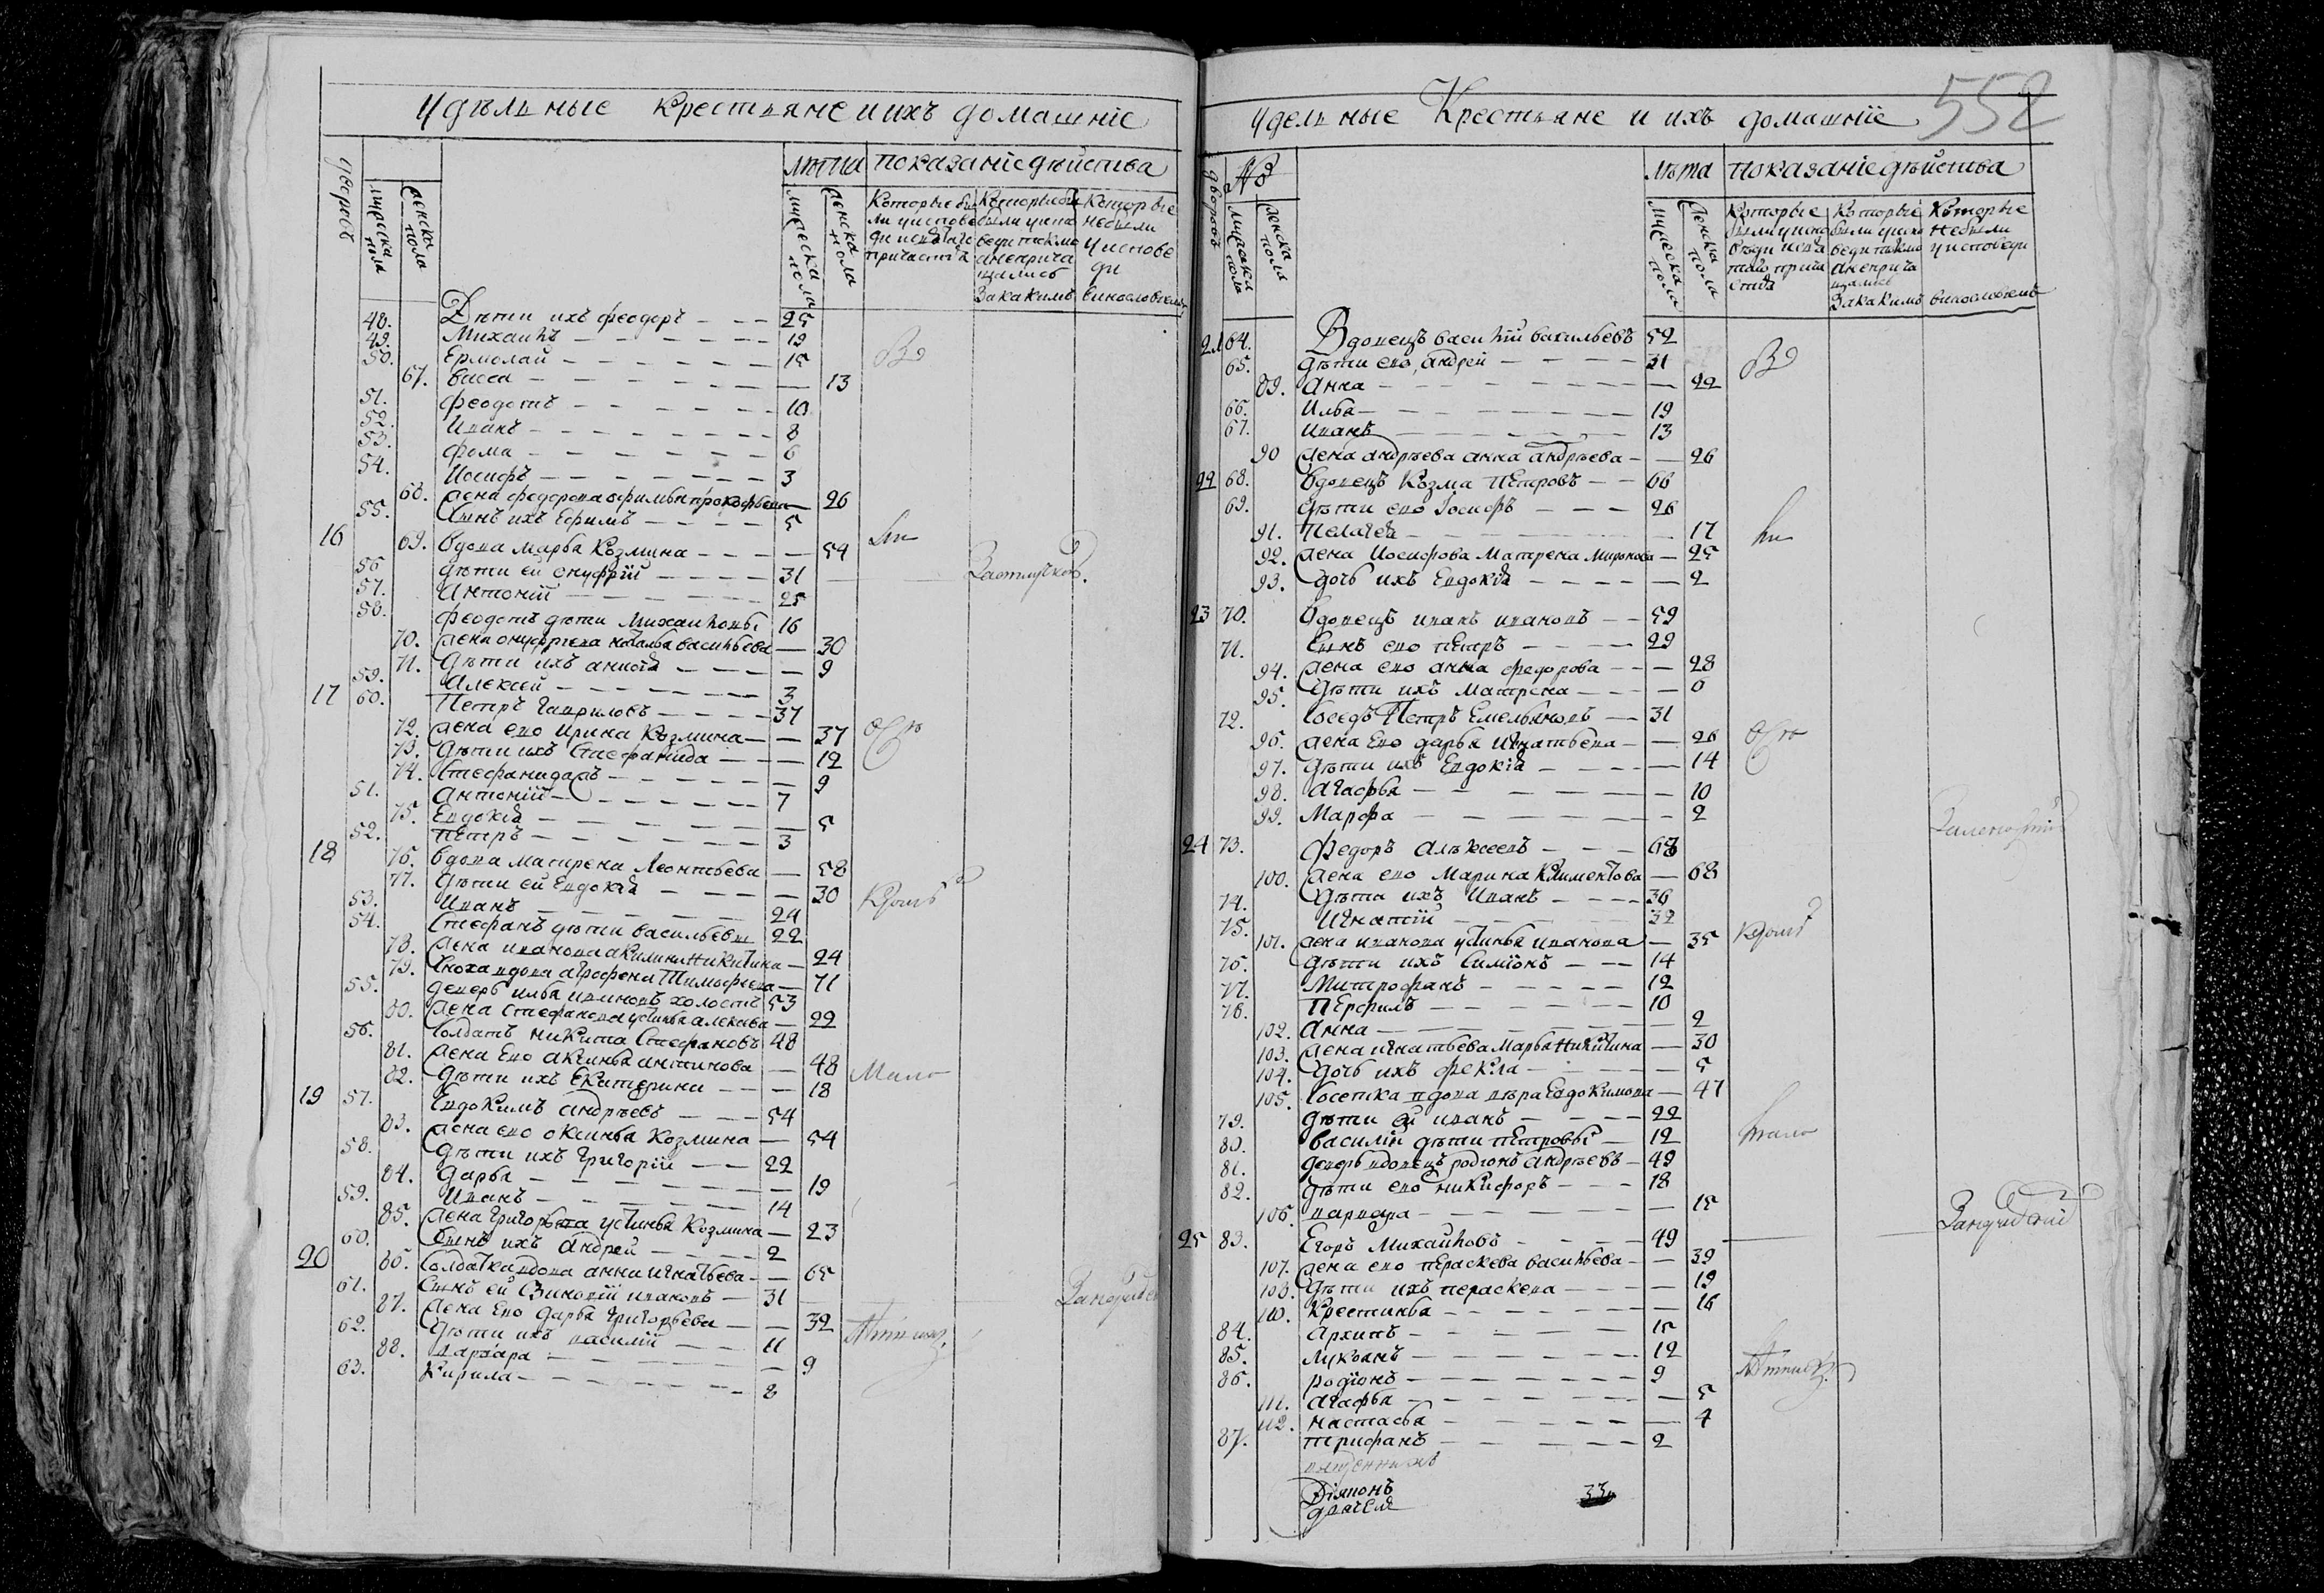 Удѣльные Крестьяне и ихъ домашніе
дворовъ
мужеска пола
женска пола
лѣта
показаніе дѣйства
мужеска пола
женска пола
Которые бы
ли у исповѣ
ди и св. таи
причастія
Которые
были у испо
веди токмо
а не прича
щались
За какимъ
Которые
не были
у испове
ди
винословіемъ
48. Дѣти ихъ феодоръ 25
49. Михаилъ 19
50. Ермолай 15
67. Васса 13
51. феодотъ 10
52. Иванъ 8
53. фома 6
54. Иосифъ 3
68. жена федорова офимья прокофьева 26
55. Сынъ ихъ Ефимъ 5
16 69. Вдова Марья Козмина 54
56 дѣти ей онуфрій 31
57. Антоній 25
58. феодотъ дѣти Михаиловы 16
70. жена онуфріева наталья васильева 30
71. Дѣти ихъ 9
59. Алексей 3
17 60. Петръ Гавриловъ 37
72. жена ево Ирина Козмина 37
73. Дѣти ихъ Стефанида 12
74. 9
51. Антоній 7
75. Евдокія 5
52. Петръ 3
18 76. Вдова Матрена Леонтьева 58
77. Дѣти ей Евдокія 30
53. Иванъ 24
54. Стефанъ дѣти васильевы 22
78. жена иванова акилина никитина 24
79. Сноха вдова агрофена Тимофиева 71
55. деверь илья ивановъ холостъ 53
80. жена стефанова устинья алексева 22
56. Солдатъ никита Стефановъ 48
81. жена Ево аксинья антипова 48
82. Дѣти ихъ Екатерина 18
19 57. Евдокимъ андрѣевъ 54
83. жена ево оксинья Козмина 54
58. Дѣти ихъ Григорій 22
84. Дарья 19
59. Иванъ 14
85. жена Григорьева устинья Козмина 23
60. Сынъ ихъ Андрей 2
20 86. Солдатка вдова анна игнатьева 65
61. Сынъ ей Зиновій ивановъ 31
87. жена Ево Дарья Григорьева 32
62. Дѣти ихъ василій 11
88. варвара 9
63. Кирила 8
552
Уделъные Крестьяне и ихъ домашніе
дворовъ
№
мужеска пола
женска пола
лѣта
показаніе дѣйства
мужеска пола
женска пола
Которые
были у испо
веди и св.
таинъ прича
стія
Которые
были у испо
веди токмо
а не прича
щались
За какимъ
Которые
не были
у исповеди
винословіемъ
21 64. Вдовецъ василій васильевъ 52
65. Дѣти ево, андрей 31
89. Анна 22
66. Илья 19
67. Иванъ 13
90 жена андрѣева анна андрѣева 26
22 68. Вдовецъ Козма Петровъ 66
69. Дѣти ево Іосифъ 26
91. Пелагея 17
92. жена Иосифова Матрена Миронова 25
93. дочь ихъ Евдокія 2
23 70. Вдовецъ иванъ ивановъ 59
71. Сынъ ево Петръ 29
94. жена ево анна федорова 28
95. Дѣти ихъ Матрена 6
72. Соседъ Петръ Емельяновъ 31
96. жена Ево дарья игнатьева 26
97. Дѣти ихъ Евдокія 14
98. Агафья 10
99. Марфа 2
24 73. Федоръ алѣксеевъ 68
100. жена ево Марина Климентова 68
74. Дѣти ихъ Иванъ 36
75. Игнатій 32
101. жена иванова устинья иванова 35
76. Дѣти ихъ Симіонъ 14
77. Митрофанъ 12
78. Перфилъ 10
102. Анна 2
103. жена игнатьева Марья никитина 30
104. Дочь ихъ фекла 5
105. Соседка вдова вѣра Евдокимова 47
79. Дѣти ей иванъ 22
80. василій дѣти петровы 12
81. деверь вдовецъ родіонъ андрѣевъ 49
82. Дѣти ево никифоръ 18
106. варвара 15
25 83. Егоръ Михаиловъ 49
107. жена ево пераскева васильева 39
108. Дѣти ихъ пераскева 19
110. Крестинья 16
84. архипъ 15
85. лукьянъ 12
86. родіонъ 9
111. агафья 5
112. настасья 4
87. трифанъ 2
священникъ
Діяконъ